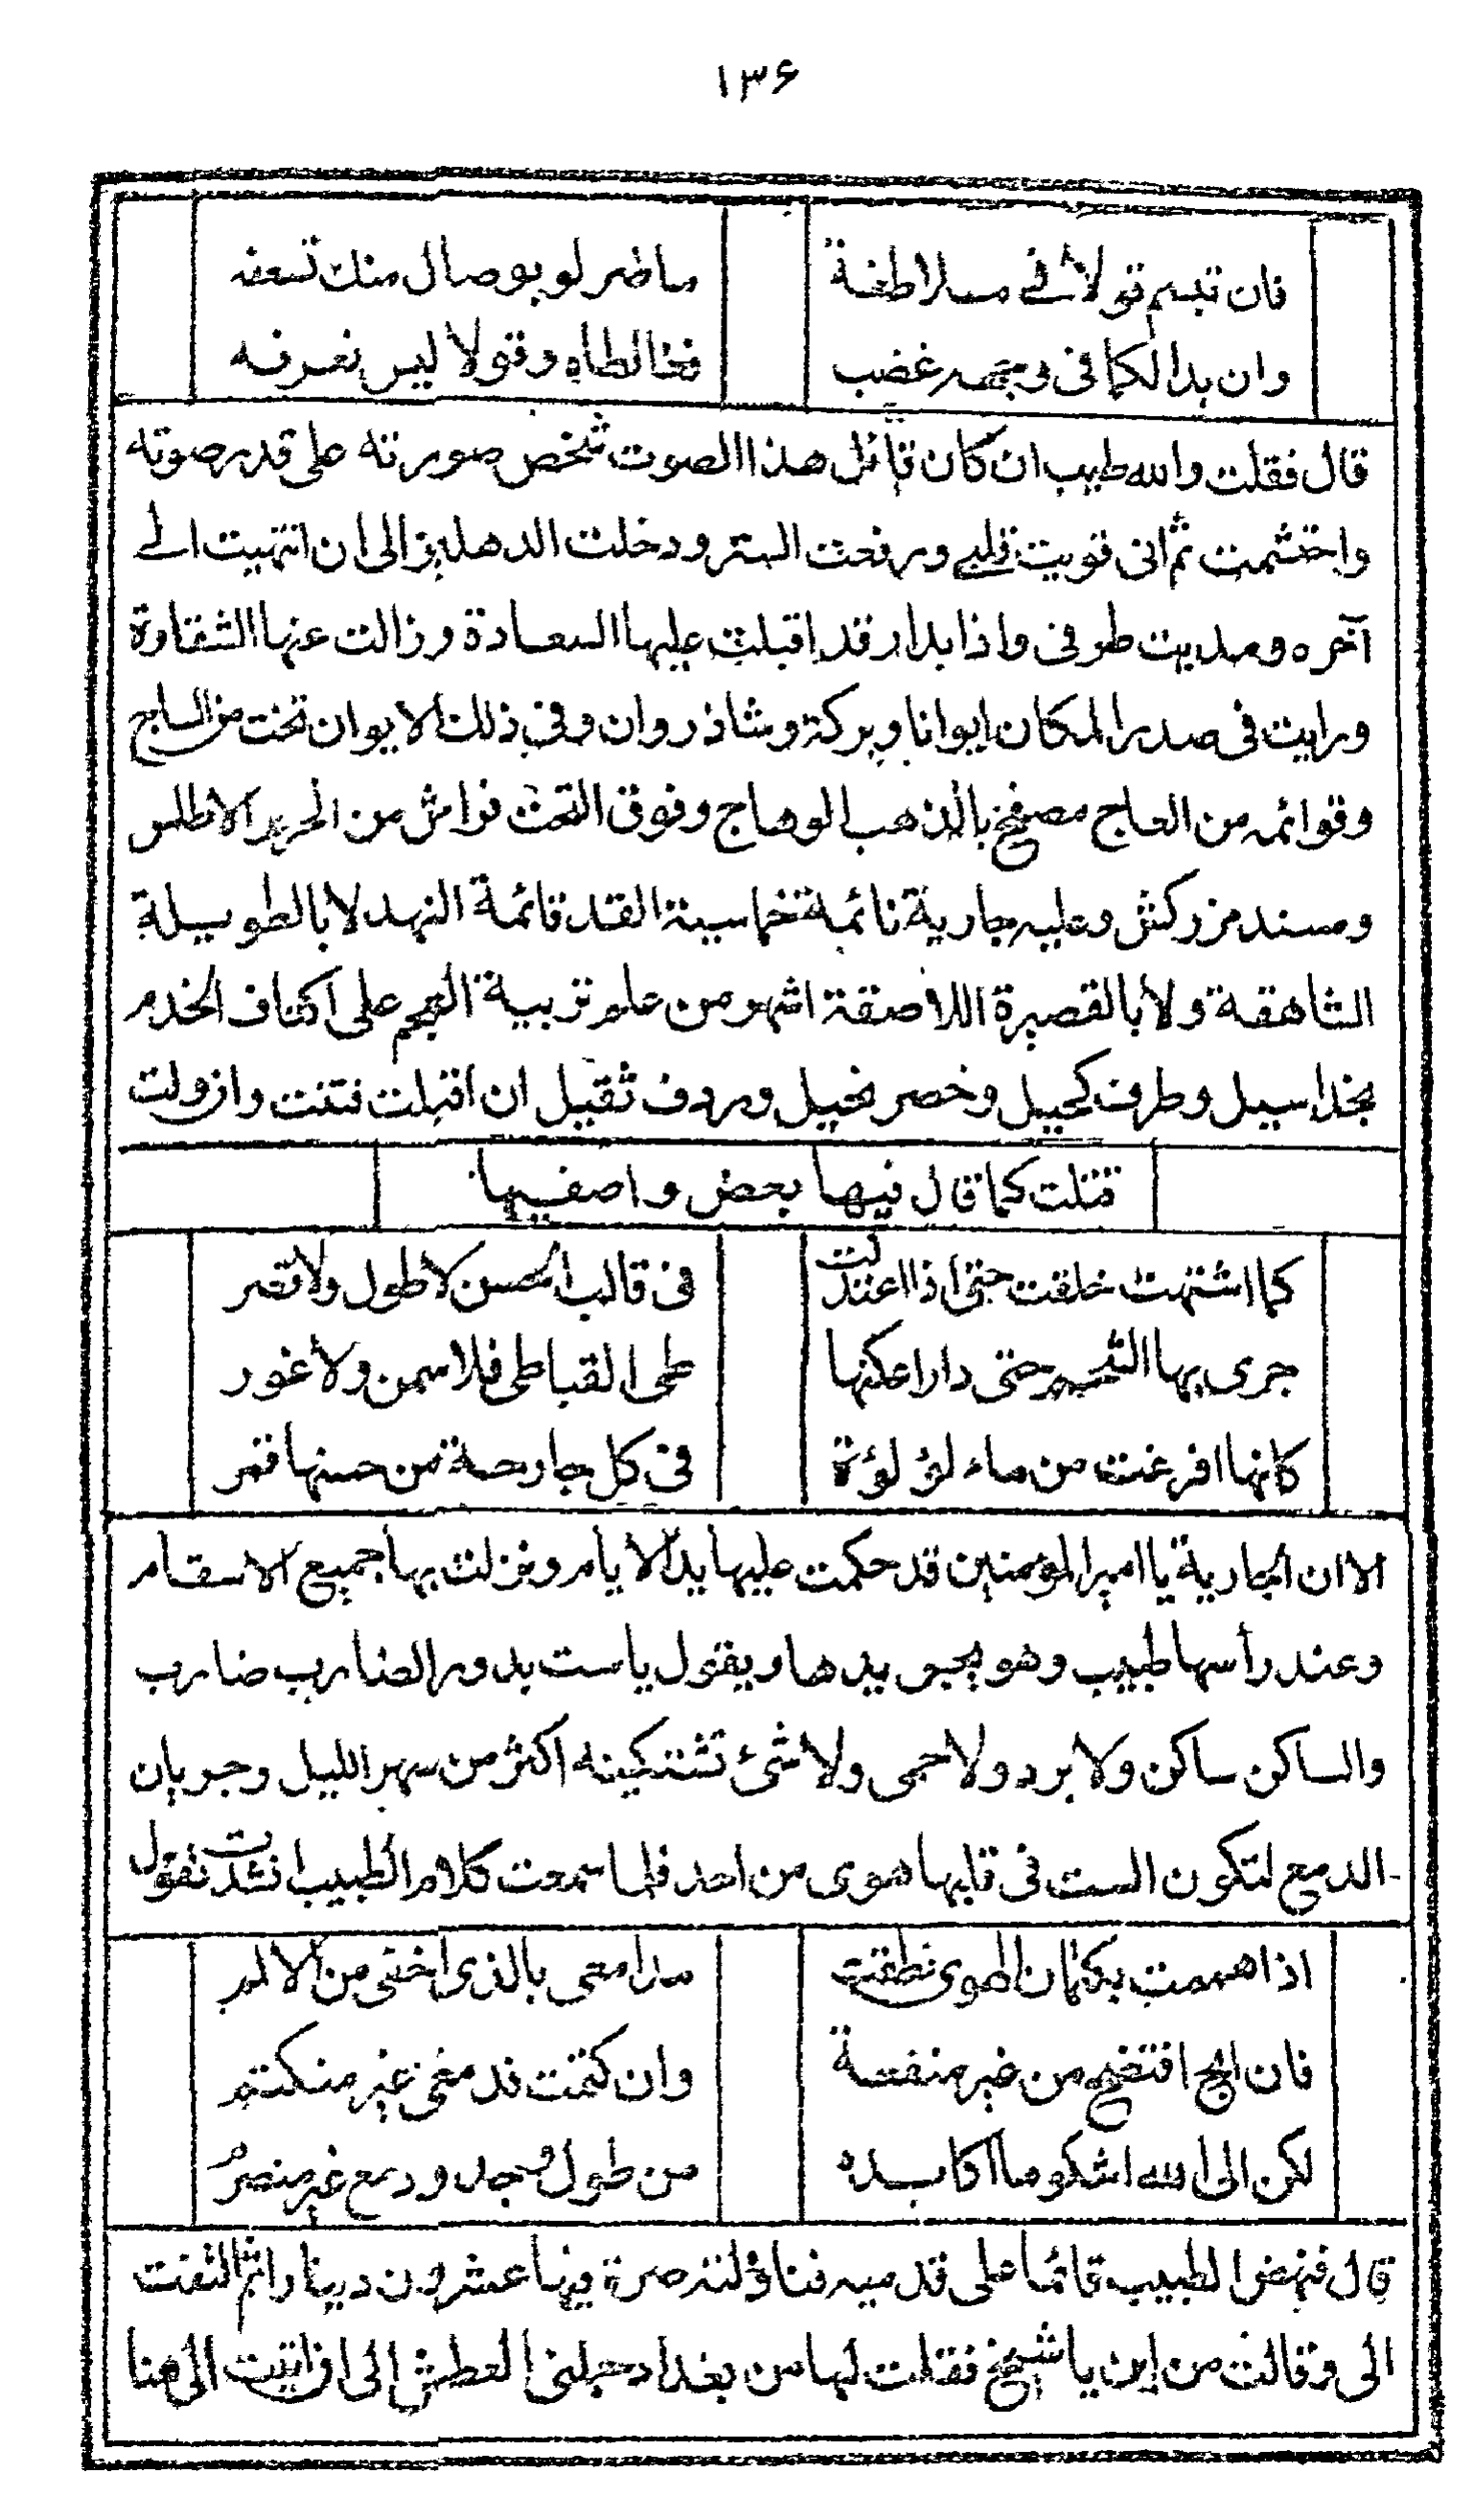 ١٣۶
فان تبسم قولا في ملاطفة ما ضر لو بوصال منك تسعفه
وان بدا لكما فى وجهه غضب فغالطاه وقولا ليس نعرفه
قال فقلت والله طيب ان كان قائل هذا الصوت شخص صورته على قدر صوته
واحتشمت ثم انى قويت قلبي ورفعت الستر ودخلت الدهليز الى ان انتهيت الي
آخره ومديت طرفى واذا بدار قد اقبلت عليها السعادة وزالت عنها الشقاوة
ورايت فى صدر المكان ايوانا وبركة وشاذروان وفي ذلك الايوان تخت من الساج
وقوائمه من العاج مصفح بالذهب الوهاج وفوق التخت فراش من الحرير الاطلس
ومسند مزركش وعليه جارية نائمة خماسية القد قائمة النهد لا بالطويلة
الشاهقة ولا بالقصيرة اللاصقة اشهر من علم تربية العجم على اكتاف الخدم
بخد اسيل وطرف كحيل وخصر نحيل وردف ثقيل ان اقبلت فتنت وان ولت
قتلت كما قال فيها بعض واصفيها
كما اشتهت خلقت حتى اذا اعتدلت فى قالب الحسن لا طول ولا قصر
جرى بها الشحم حتى دار اعكنها طى القباطى فلا سمن ولا غور
كانها افرغت من ماء لؤلؤة فى كل جارحة من حسنها قمر
الا ان الجارية يا امير المؤمنين قد حكمت عليها يد الايام ونزلت بها جميع الاسقام
وعند رأسها طبيب وهو يجس يدها ويقول يا ست بدور الضارب ضارب
والساكن ساكن ولا برد ولا حمى ولا شئ تشتكينه اكثر من سهر الليل وجريان
الدمع لتكون الست فى قلبها هوى من احد فلما سمعت كلام الطبيب انشدت تقول
اذا هممت بكتمان الهوى نطقت مدامعى بالذى اخفى من الالم
فان ابح افتضح من غير منفعة وان كتمت فدمعى غير منكتم
لكن الى الله اشكو ما اكابده من طول وجد ودمع غير منصرم
قال فنهض الطبيب قائما على قدميه فناولته صرة فيها عشرون دينارا ثم التفت
الى وقالت من اين يا شيخ فقلت لها من بغداد حملنى العطش الى ان اتيت الى هنا